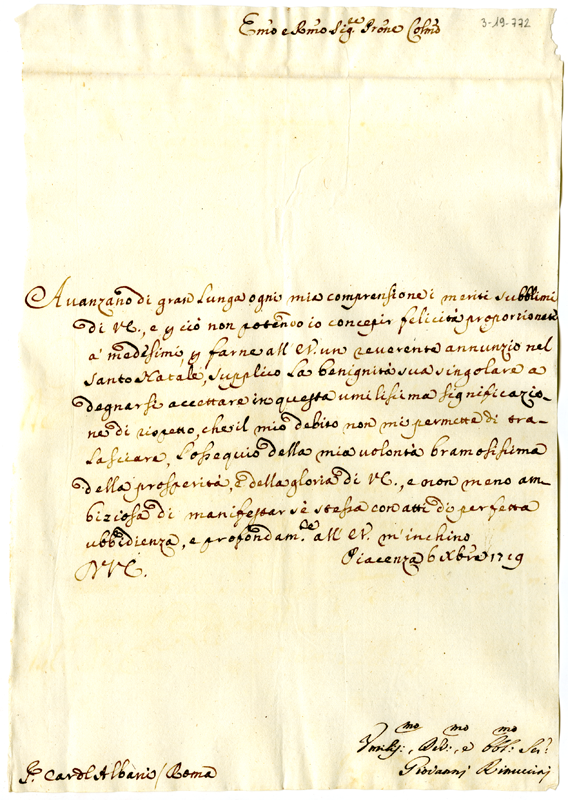 Emo e Rmo Sigr. Prone Colmo
3-19-772
Avanzano di gran lunga ogni mia comprensione i meriti subblimi
di VE., e p ciò non potendo io concepir felicità proporzionate
a' medesimi, p farne all' EV. un reverente annunzio nel
Santo Natale, supplico la benignità sua singolare a
degnarsi accettare in questa umilissima significazio-
ne di rispetto, che il mio debito non mi permette di tra-
lasciare, l'ossequio della mia volontà bramosissima
della prosperità, e della gloria di VE., e non meno am-
biziosa di manifestar sè stessa con atti di perfetta
ubbidienza, e profondam.te all' EV. m'inchino
Piacenza 6 Xbre 1719
DVE.
Umiliss:mo, Dev:mo, e Obbl:mo Ser:
Giovanni Rinuccini
Sr. Cardl Albani / Roma